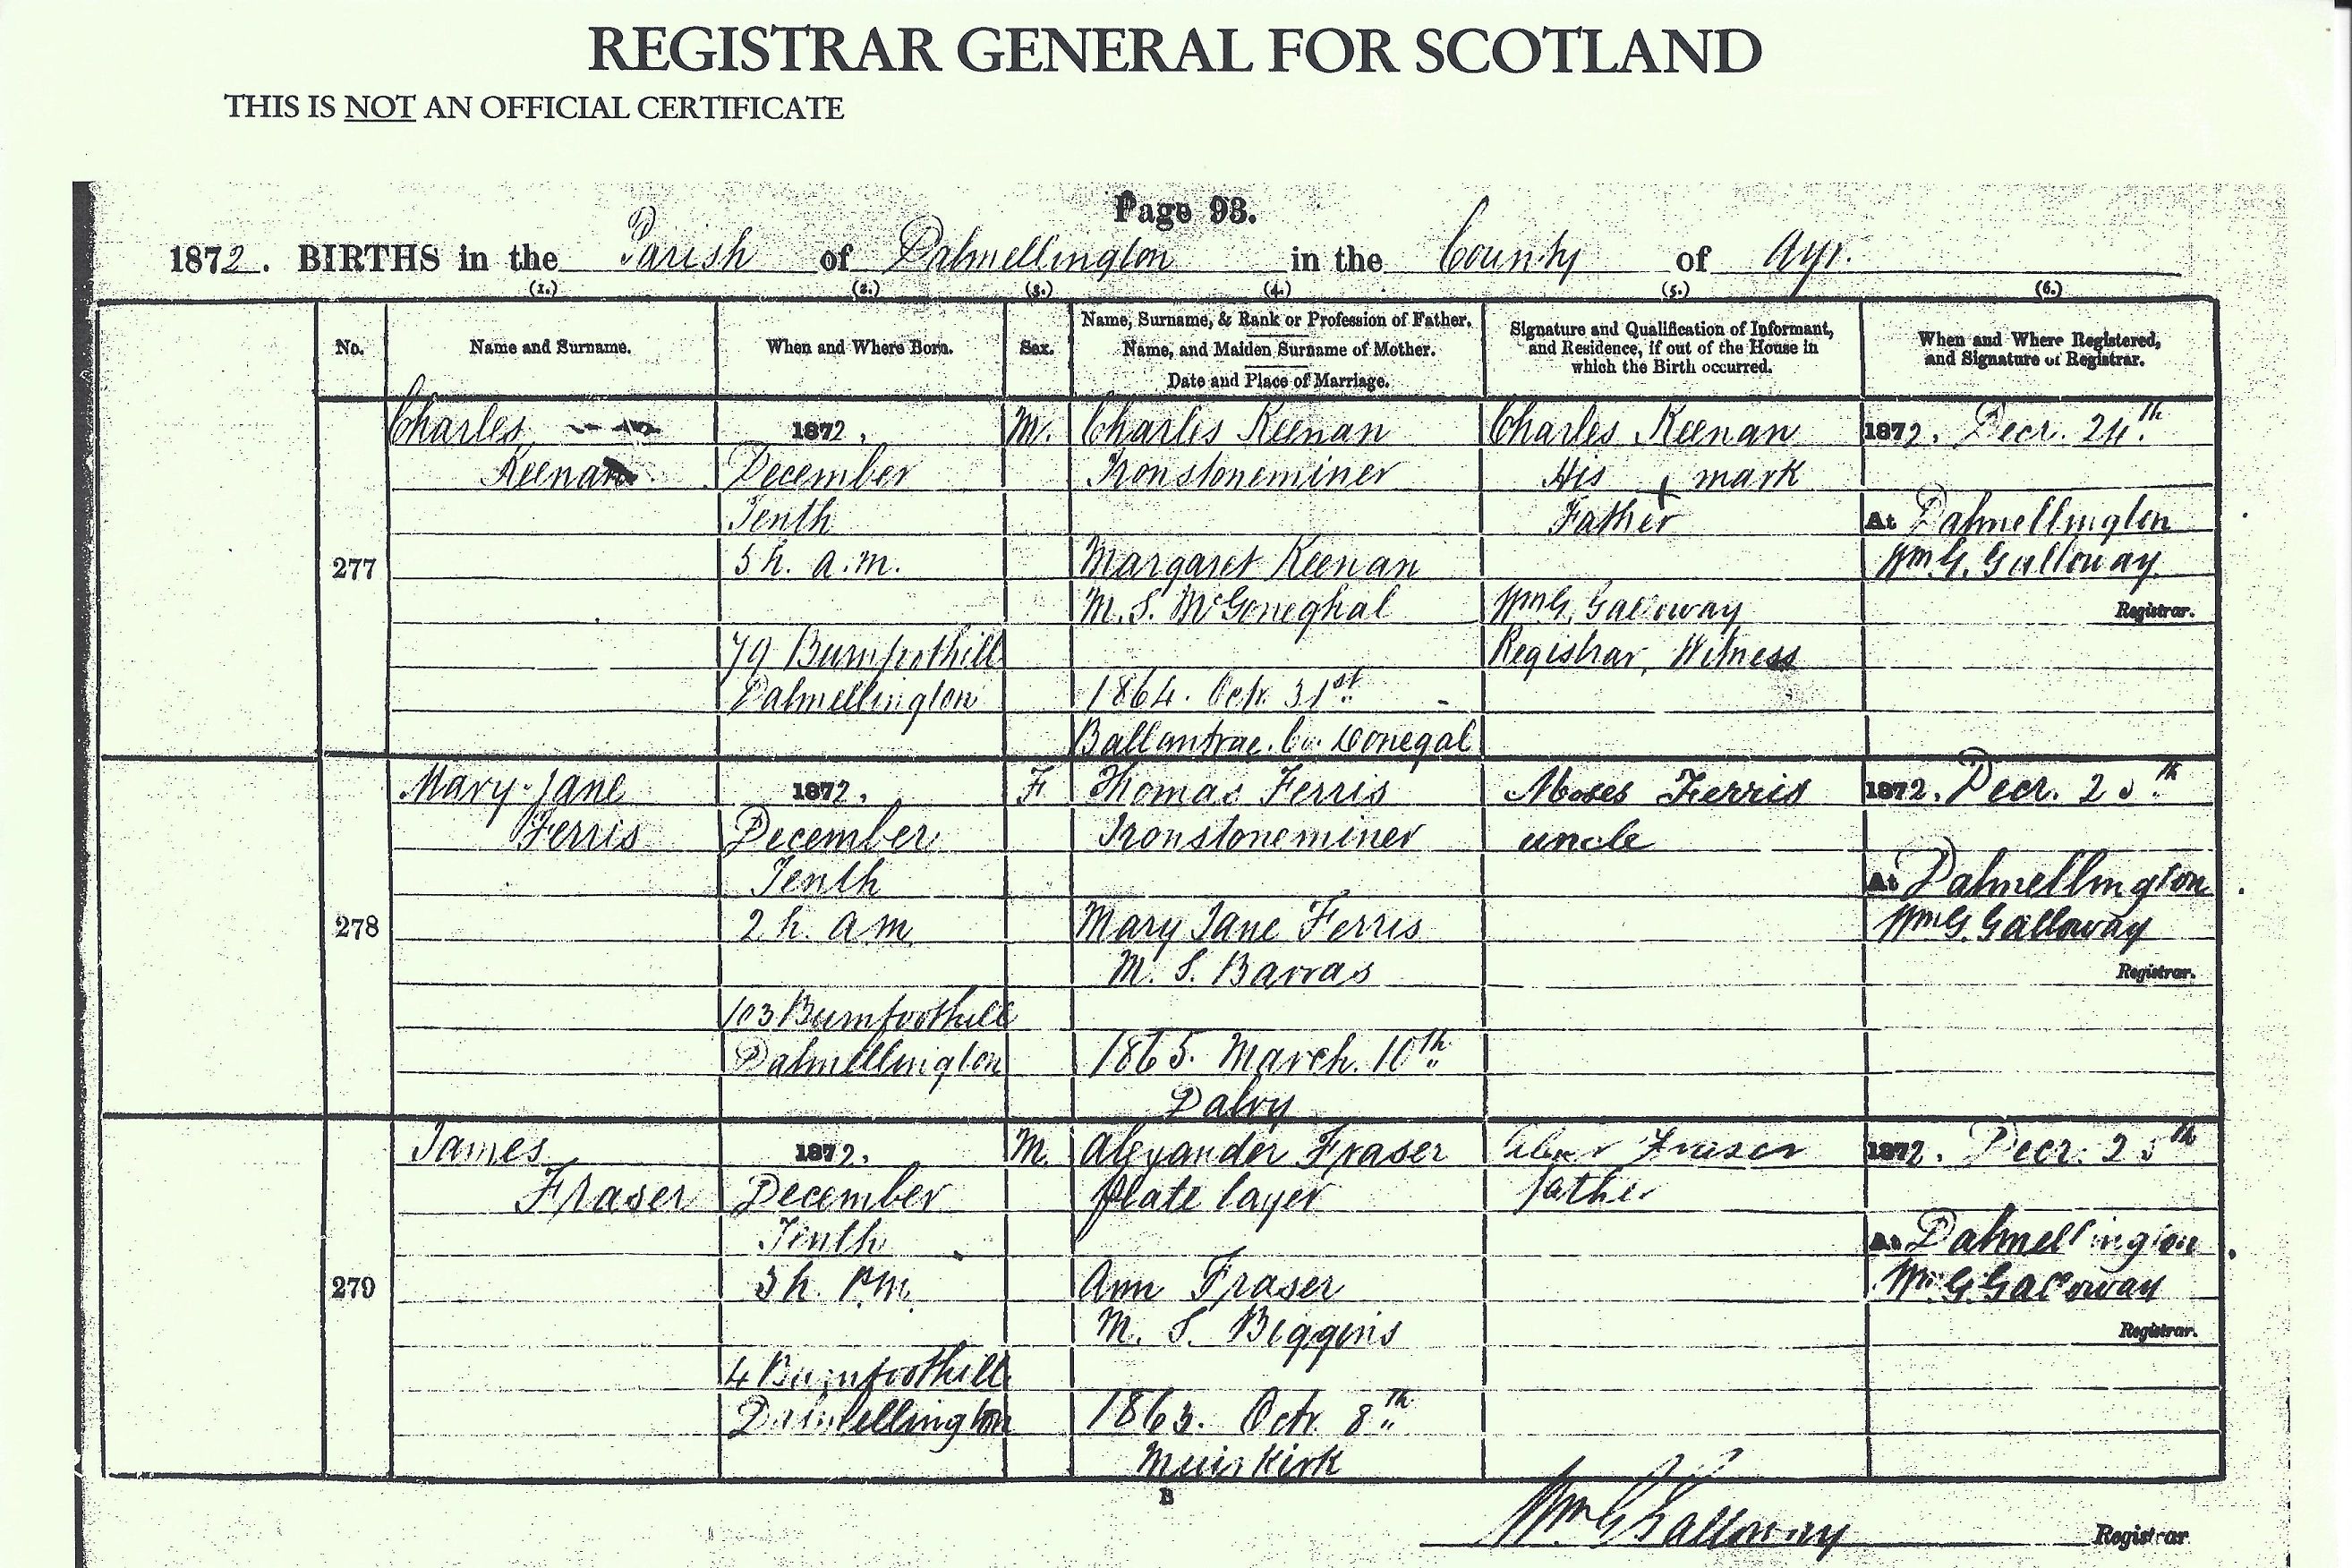 REGISTRAR GENERAL FOR SCOTLAND
THIS IS NOT AN OFFICIAL CERTIFICATE
Page 93.
1872. BIRTHS in the Parish of Dalmellington in the County of Ayr.
(1.) (2.) (3.) (4.) (5.) (6.)
No.
Name and Surname.
When and Where Born.
Sex.
Name, Surname, & Rank or Profession of Father.
Name, and Maiden Surname of Mother.
Date and Place of Marriage.
Signature and Qualification of Informant,
and Residence, if out of the House in
which the Birth occurred.
When and Where Registered,
and Signature of Registrar.
277
Charles
Keenan
1872.
December
Tenth
5 h. a.m.
79 Burnfoothill
Dalmellington
M.
Charles Keenan
Ironstoneminer
Margaret Keenan
M.S. McGoneghal
1864. Octr. 31st
Ballantrae. Co. Donegal
Charles Keenan
His + mark
Father
Wm G. Galloway
Registrar, Witness
1872. Decr. 24th
At Dalmellington
Wm G. Galloway
Registrar.
278
Mary Jane
Ferris
1872.
December
Tenth
2 h. am
103 Burnfoothill
Dalmellington
F
Thomas Ferris
Ironstoneminer
Mary Jane Ferris
M. S. Barras
1865. March. 10th
Dalry
Moses Ferris
uncle
1872. Decr. 25th
At Dalmellington
Wm G. Galloway
Registrar.
279
James
Fraser
1872.
December
Tenth
5 h. P.m.
4 Burnfoothill
Dalmellington
M.
Alexander Fraser
plate layer
Ann Fraser
M. S. Biggins
1863. Octr. 8th
Muirkirk
Fraser
father
1872. Decr. 25th
At Dalmellington
Wm G. Galloway
Registrar.
B
Wm G Galloway Registrar